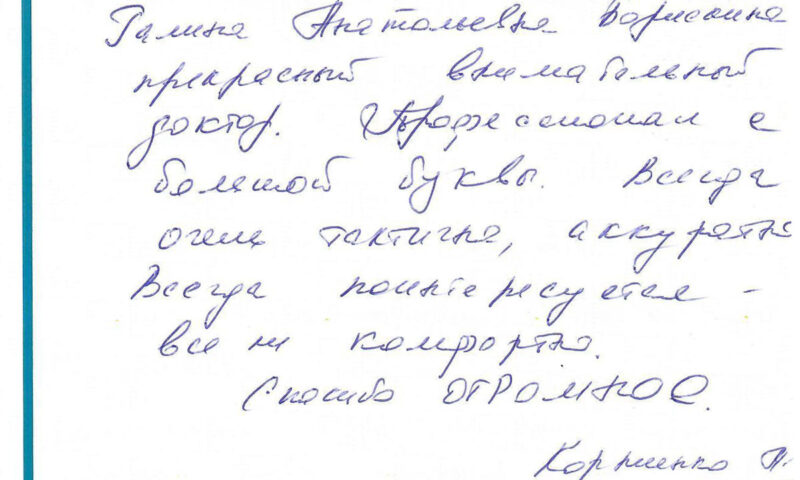 Галина Анатольевна Борисовна
прекрасный внимательный
доктор. Профессионал с
большой буквы. Всегда
очень тактична, аккуратна
Всегда поинтересуется -
все ли комфортно.
Спасибо ОГРОМНОЕ.
Корниенко